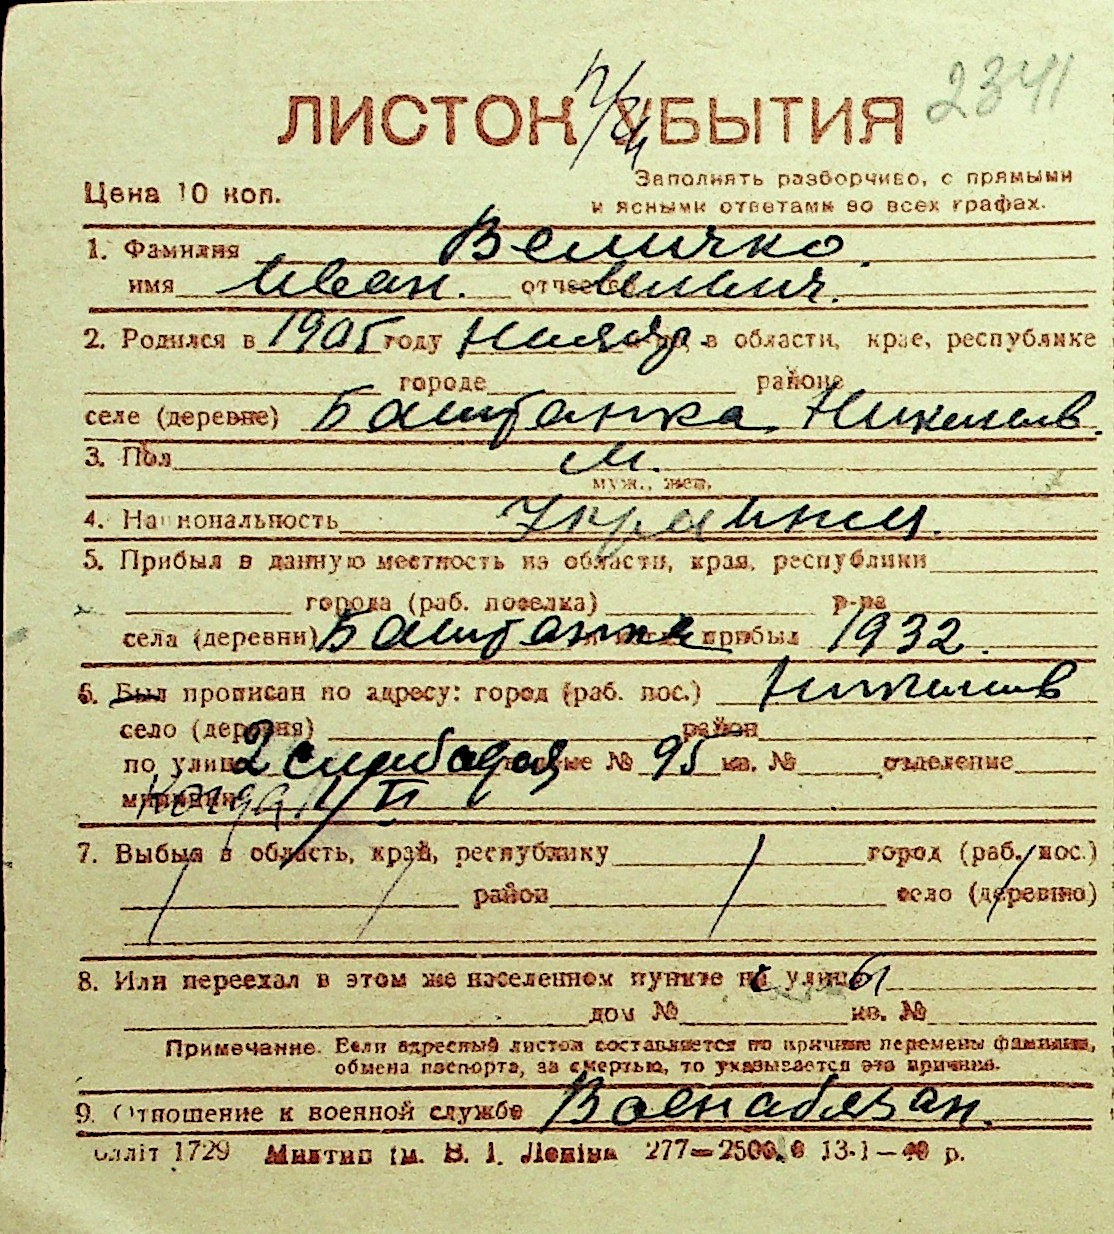 2341
ЛИСТОК УБЫТИЯ
Цена 10 коп.
Заполнять разборчиво, с прямыми
и ясными ответами во всех графах.
1. Фамилия Величко.
имя Иван. отчество Ильич.
2. Родился в 1905 году в области, крае, республике
городе районе
селе (деревне) Баштанка Николаев.
3. Пол М.
муж., жен.
4. Национальность Украинец.
5. Прибыл в данную местность из области, края, республики
города (раб. поселка) р-на
села (деревни) Баштанка прибыл 1932.
6. Был прописан по адресу: город (раб. пос.) Николаев
село (деревня) район
по улице 2 слободская № 95 кв. № отделение
милиции
7. Выбыл в область, край, республику город (раб. пос.)
район село (деревню)
8. Или переехал в этом же населенном пункте на улицу
дом № кв. №
Примечание. Если адресный листок составляется по причине перемены фамилии,
обмена паспорта, за смертью, то указывается эта причина.
9. Отношение к военной службе Военнобязан.
лліт 1729 Миктип ім. В. І. Леніна 277—2500.0 13-1—40 р.